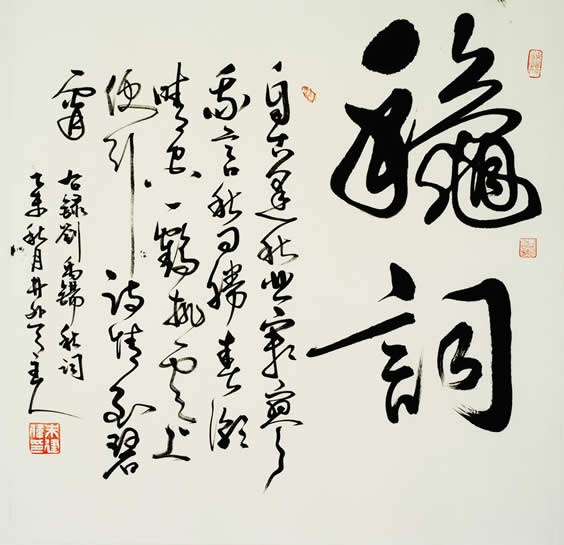 龝詞
自古逢秋悲寂寥
我言秋日勝春潮
晴空一鶴排雲上
便引詩情到碧
霄
右錄劉禹錫秋詞
乙未秋月井外天主人